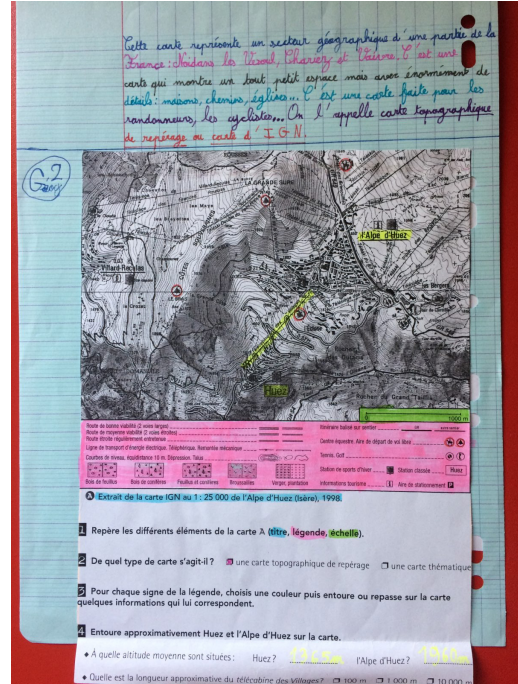 Cette carte représente un secteur géographique d'une partie de la
France: Noidans les Vesoul, Chariez et Vaivre. C'est une
carte qui montre un tout petit espace mais avec énormément de
détails: maisons, chemins, églises... C'est une carte faite pour les
randonneurs, les cyclistes... On l'appelle carte topographique
de repérage ou carte d'IGN.
G2
LA GRANDE SURE
l'Alpe d'Huez
Villard-Reculas
les Bergers
Huez
Rocher du Grand
0 1000 m
Route de bonne viabilité (2 voies larges)
Route de moyenne viabilité (2 voies étroites)
Route étroite régulièrement entretenue
Ligne de transport d'énergie électrique. Téléphérique. Remontée mécanique
Courbes de niveau, équidistance 10 m. Dépression. Talus
Bois de feuillus Bois de conifères Feuillus et conifères Broussailles Verger, plantation
Itinéraire balisé sur sentier
Centre équestre. Aire de départ de vol libre
Tennis. Golf
Station de sports d'hiver Station classée Huez
Informations tourisme Aire de stationnement P
A Extrait de la carte IGN au 1 : 25 000 de l'Alpe d'Huez (Isère), 1998.
1 Repère les différents éléments de la carte A (titre, légende, échelle).
2 De quel type de carte s'agit-il ? une carte topographique de repérage une carte thématique
3 Pour chaque signe de la légende, choisis une couleur puis entoure ou repasse sur la carte
quelques informations qui lui correspondent.
4 Entoure approximativement Huez et l'Alpe d'Huez sur la carte.
• À quelle altitude moyenne sont situées : Huez ? l'Alpe d'Huez ?
• Quelle est la longueur approximative du télécabine des Villages? 100 m 1 000 m 10 000 m